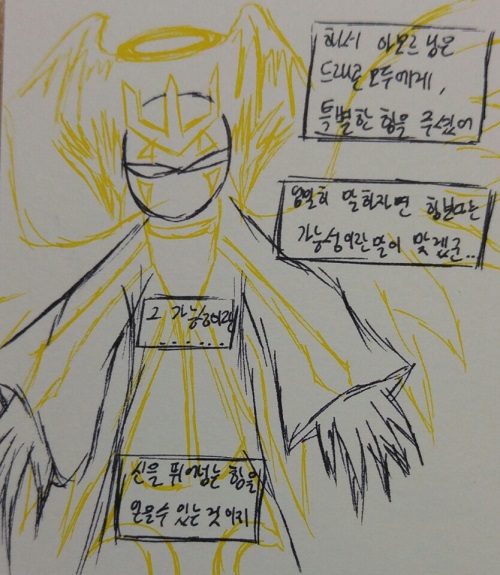 해서 아모르님은
드래곤 모두에게,
특별한 힘을 주셨어
엄밀히 말하자면 힘보다는
가능성이란 말이 맞겠군..
그 가능성이란
......
신을 뛰어넘는 힘을
얻을 수 있는 것이지